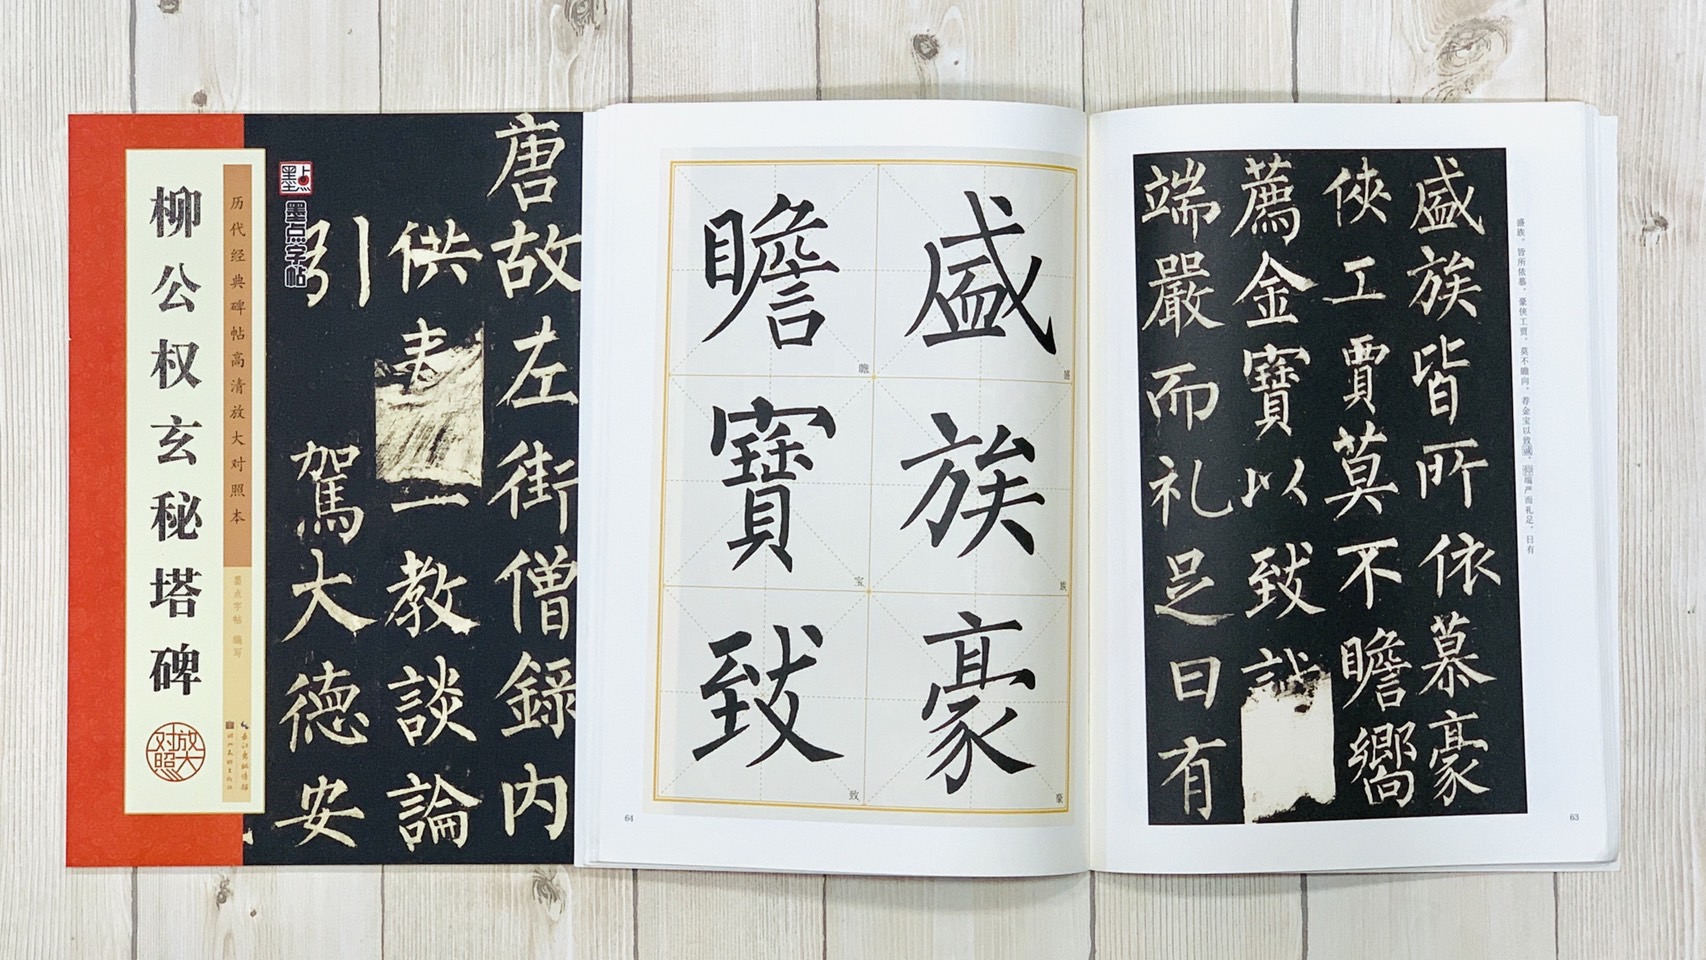 柳公权玄秘塔碑
放大对照
历代经典碑帖高清放大对照本
墨点字帖 编写
墨点
墨点字帖
唐故左街僧錄内
供表一教談論
引駕大德安
盛族豪
瞻寶致
盛
族
豪
瞻
宝
致
64
盛族皆所依慕豪
俠工賈莫不瞻嚮
薦金寶以致誠
端嚴而礼足日有
盛族，皆所依慕，豪侠工贾，莫不瞻向，荐金宝以致诚，仰端严而礼足，日有
63